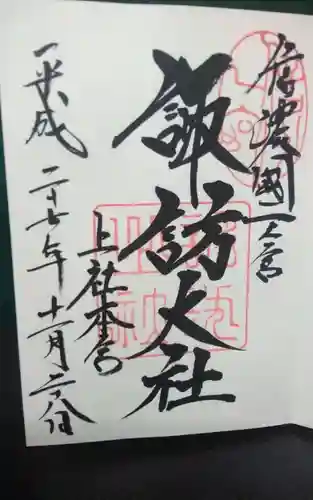 信濃國一之宮
諏訪大社
上社本宮
平成二十七年十一月二十八日